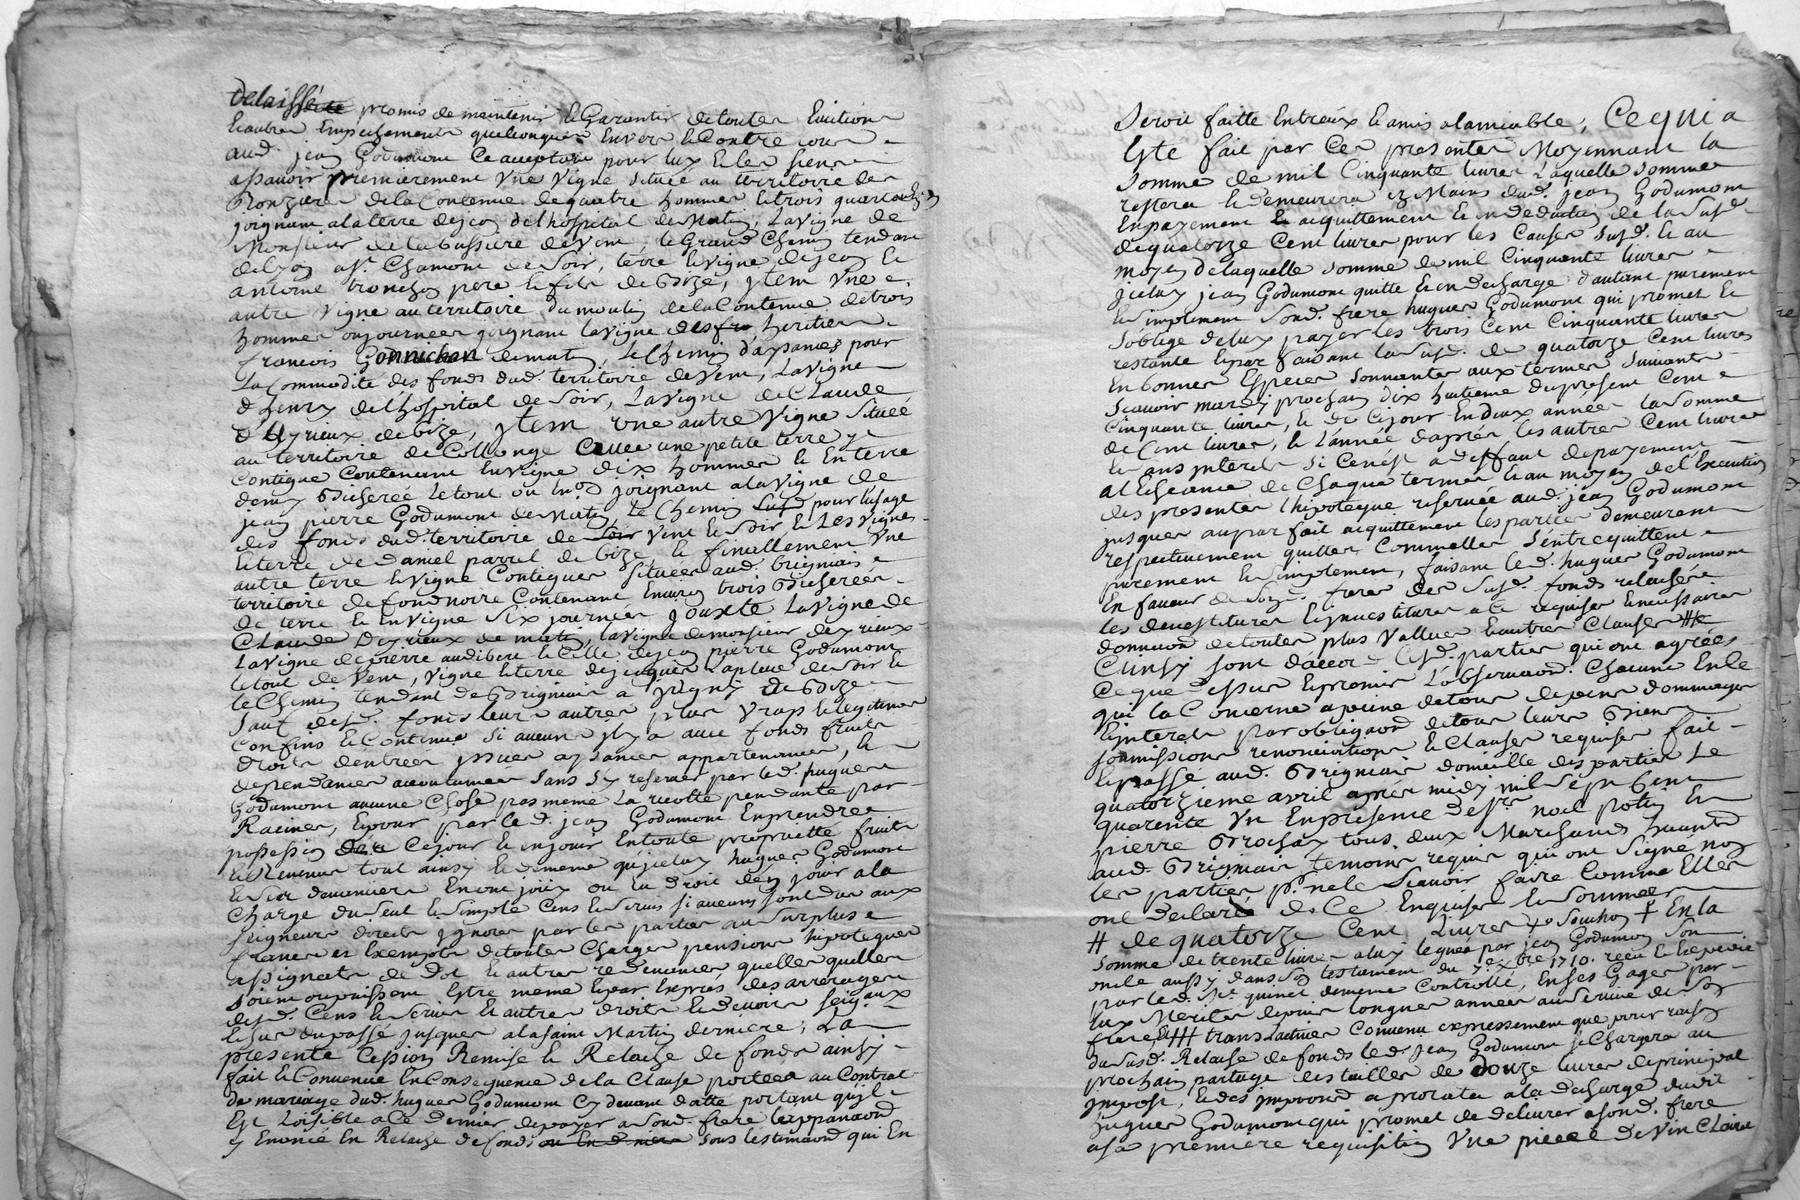 delaissé promis de maintenir & Garantir de toutes Evictions
& autres Empechements quelconques Envers & Contre tous
aud. jean Godumont Ce acceptant pour luy & les siens
assavoir premierement Une Vigne située au territoire des
Ronzieres de la Contenue de quatre hommes & trois quarts
joignant a la terre de jean de l'hospital de Matin, La vigne de
Monsieur de la bussiere de Vent, le Grand Chemin tendant
de Lyon a St. Chamont de Soir, terre & vigne de jean &
antoine tronchon pere & fils de bize, jtem Une
autre Vigne au territoire du moulin de la Contenue de trois
hommes ou journees joignant la vigne des heritiers
francois de matin, le Chemin d'aysances pour
La Commodité des fonds dud. territoire de Vent, La vigne
d'henry de l'hospital de Soir, La Vigne de Claude
d'Eyrieux de bize, jtem une autre Vigne Située
au territoire de Collonge avec une petite terre y
Contigue Contenant En vigne dix hommes & En terre
demy Bicherée Le tout ou En joignant a la vigne de
jean pierre Godumont de Matin, Le Chemin pour l'usage
des fonds dud. territoire de Vent & de Soir & Les Vignes
& terre de Daniel parrel de bize, & finallement Une
autre terre & Vigne Contigues Situées aud. brignais
territoire de fondnoire Contenant Environ trois Bicherées
de terre & En Vigne Six journées Jouxte La Vigne de
Claude Deyrieux de matin, la Vigne de monsieur deyrieux
La vigne de pierre audibert & Celle de jean pierre Godumont
le tout de Vent, Vigne & terre de jacques Laplace de Soir &
le Chemin tendant de Brignais a jrigny de Bize
Sauf desd. fonds leurs autres plus Vrays & legitimes
Confins & Contenue Si aucuns jl y a avec fonds fruits
Droits d'entrées yssues aysances appartenances, &
dependances accoutumées Sans Sy reserver par led. hugues
Godumont aucune Chose pas meme La recolte pendante par
Racines, Et pour par led. jean Godumont En prendre
possession Ce jour & En jouir En toute proprieté fruits
& Revenus tout ainsy & de meme qu'icelluy hugues Godumont
& Ses devanciers En ont joüy ou Eu droit d'en jouir a la
Charge du Seul & Simple Cens & Servis Si aucuns Sont dus aux
Seigneurs directs jgnorés par les parties au Surplus
francs & Exempts de toutes Charges pensions hipoteques
assignats de dot & autres redevances quelles quelles
Soient ou puissent Estre meme & par Exprés des arrerages
desd. Cens & Servis & autres droits & devoirs Seigaux
& Sur du passé jusques a la Saint Martin derniere; La
presente Cession Remise & Relache de fonds ainsy
fait & Convenue En Consequence de la Clause portée au Contrat
de mariage dud. hugues Godumont Cy devant datte portant qu'il
Est Loisible a Ce dernier de payer a Sond. frere
y Enoncée En Relache de fonds sous l'estimaõn qui En
Seroit faitte Entr'eux & amis a lamiable, Ce qui a
Esté fait par Ces presentes Moyennant la
Somme de mil Cinquante livres Laquelle Somme
restera & demeurera Ez Mains dud. jean Godumont
En payement & acquittement & En deduction de la Susd.
de quatorze Cent livres pour les Causes Susd. & au
moyen de laquelle Somme de mil Cinquante livres
jceluy jean Godumont quitte & En decharge d'autant purement
& Simplement Sond. frere hugues Godumont qui promet &
S'oblige de luy payer les trois Cent Cinquante livres
restante & par faisant la Susd. de quatorze Cent livres
En bonnes Especes Sonnantes aux termes Suivants
Scavoir mardy prochain dix huitieme du present Cent
Cinquante livres, & de Ce jour En deux années la Somme
de Cent livres, & l'année d'aprés les autres Cent livres
& Sans jnterets Si Ce n'est a deffaut de payement
a l'Echeance de Chaque terme & au moyen de l'Execution
des presentes l'hipoteque reservée aud. jean Godumont
jusques au parfait acquittement les parties demeurent
respectivement quittes Comme Elles S'entrequittent
purement & Simplement, faisant led. hugues Godumont
En faveur de Sond. frere des Susd. fonds relachés
les devestitures & jnvestitures a Ce requises & necessaires
donnaõn de toutes plus Values & autres Clauses
Cy ainsy Sont d'accord Lesd. parties qui ont agréés
Ce que dessus & promis L'observaõn. Chacune En Ce
qui la Concerne a peine de tous depens dommages
& jnterets par obligaõn de tous leurs Biens
Soumissions renonciations & Clauses requises fait
& passé aud. Brignais domicille des parties Le
quatorzieme avril apres midy mil Sept Cent
quarente Un En presence de Sr. noel potin &
pierre Brochay tous deux Marchands habitants
aud. Brignais temoins requis qui ont Signé non
les parties pr. ne le Scavoir faire Comme Elles
ont declaré de Ce Enquises & Sommées
# de quatorze Cent Livres + En la
Somme de trente livres a luy leguée par jean Godumont Son
oncle aussy dans Son testament du 7e xbre 1710. recu & Expedié
par led. Me. quinet de meme Controllé, En Ses Gages par
luy Merités depuis longues années au Service de Sond.
frere # transactuer Convenu expressement que pour raison
du Susd. Relache de fonds led. jean Godumont Se Chargera au
prochain partage des tailles de douze livres de principal
jmpost, & des jmpositd a prorata a la decharge dudit
hugues Godumont qui promet de delivrer a Sond. frere
a Sa premiere requisition Une piece de Vin Claire